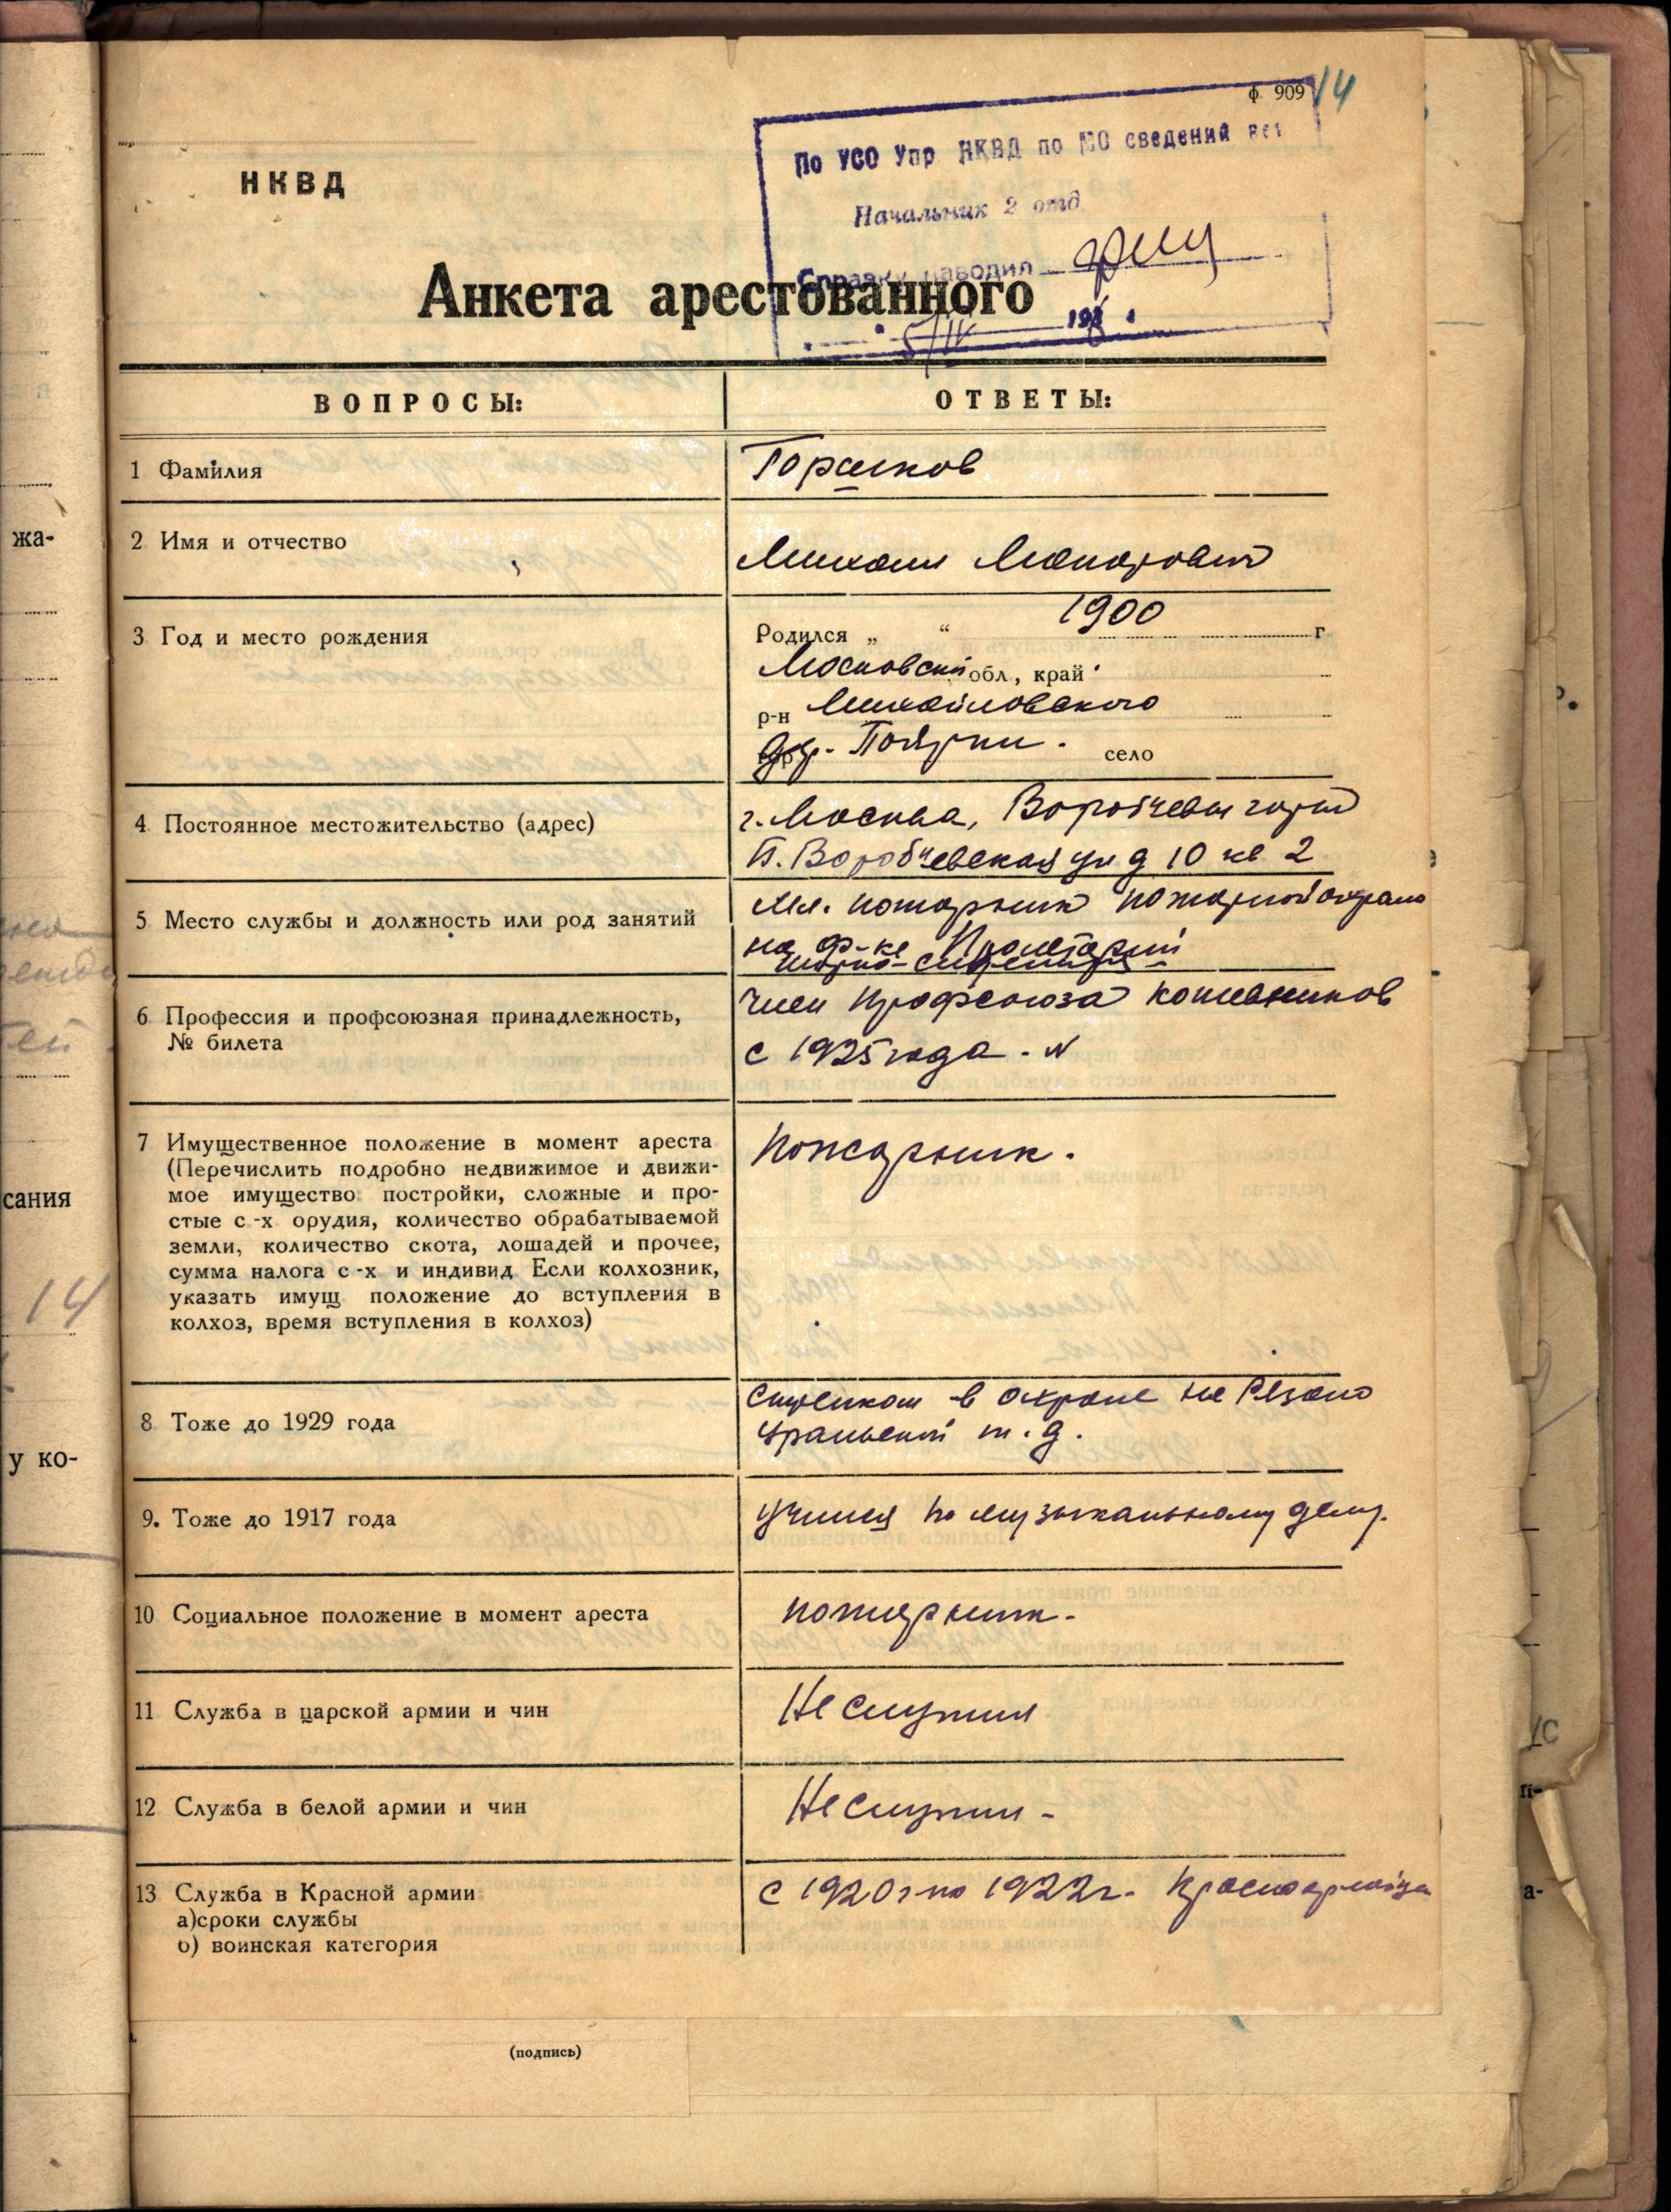 ф 909
14
По УСО Упр НКВД по МО сведений нет
НКВД
Начальник 2 отд
Справку наводил
Анкета арестованного
5/IV 1938
ВОПРОСЫ:
ОТВЕТЫ:
1 Фамилия
Горшков
2 Имя и отчество
Михаил Макарович
3 Год и место рождения
Родился „ “ 1900 г
Московской обл, край
р-н Михайловского
дер. Поярки. село
4 Постоянное местожительство (адрес)
г. Москва, Воробьевы горы
Б. Воробьевская ул д 10 кв 2
5 Место службы и должность или род занятий
Мл. пожарник пожарной охраны
на ф-ке Пролетарий
6 Профессия и профсоюзная принадлежность,
№ билета
член профсоюза кожевников
с 1925 года. N
7 Имущественное положение в момент ареста
(Перечислить подробно недвижимое и движи-
мое имущество постройки, сложные и про-
стые с-х орудия, количество обрабатываемой
земли, количество скота, лошадей и прочее,
сумма налога с-х и индивид Если колхозник,
указать имущ положение до вступления в
колхоз, время вступления в колхоз)
Пожарник.
8 Тоже до 1929 года
Стрелком в охране на Рязано
Уральской ж.д.
9. Тоже до 1917 года
Учился по музыкальному делу.
10 Социальное положение в момент ареста
пожарник.
11 Служба в царской армии и чин
Не служил
12 Служба в белой армии и чин
Не служил -
13 Служба в Красной армии
а)сроки службы
б) воинская категория
с 1920 г по 1922 г. Красноармейцем
(подпись)
жа-
сания
14
у ко-